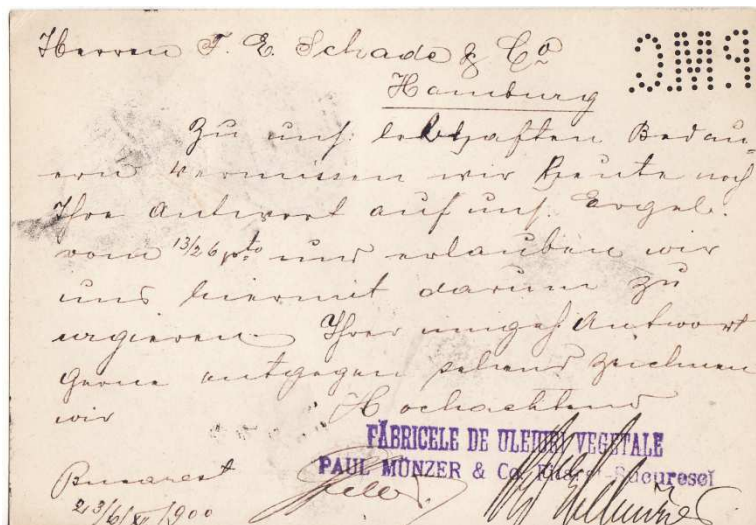 Herren F. E. Schade & Co
Hamburg
PMC
Zu uns. lebhaften Bedau-
ern vermissen wir heute noch
Ihre Antwort auf uns. Ergeb.
vom 13/26 pto und erlauben wir
uns hiermit darum zu
urgieren. Ihrer umgeh. Antwort
gerne entgegen sehend zeichnen
wir Hochachtend
FĂBRICELE DE ULEIURI VEGETALE
PAUL MÜNZER & Co. Filaret-Bucuresci
Bucarest
1900